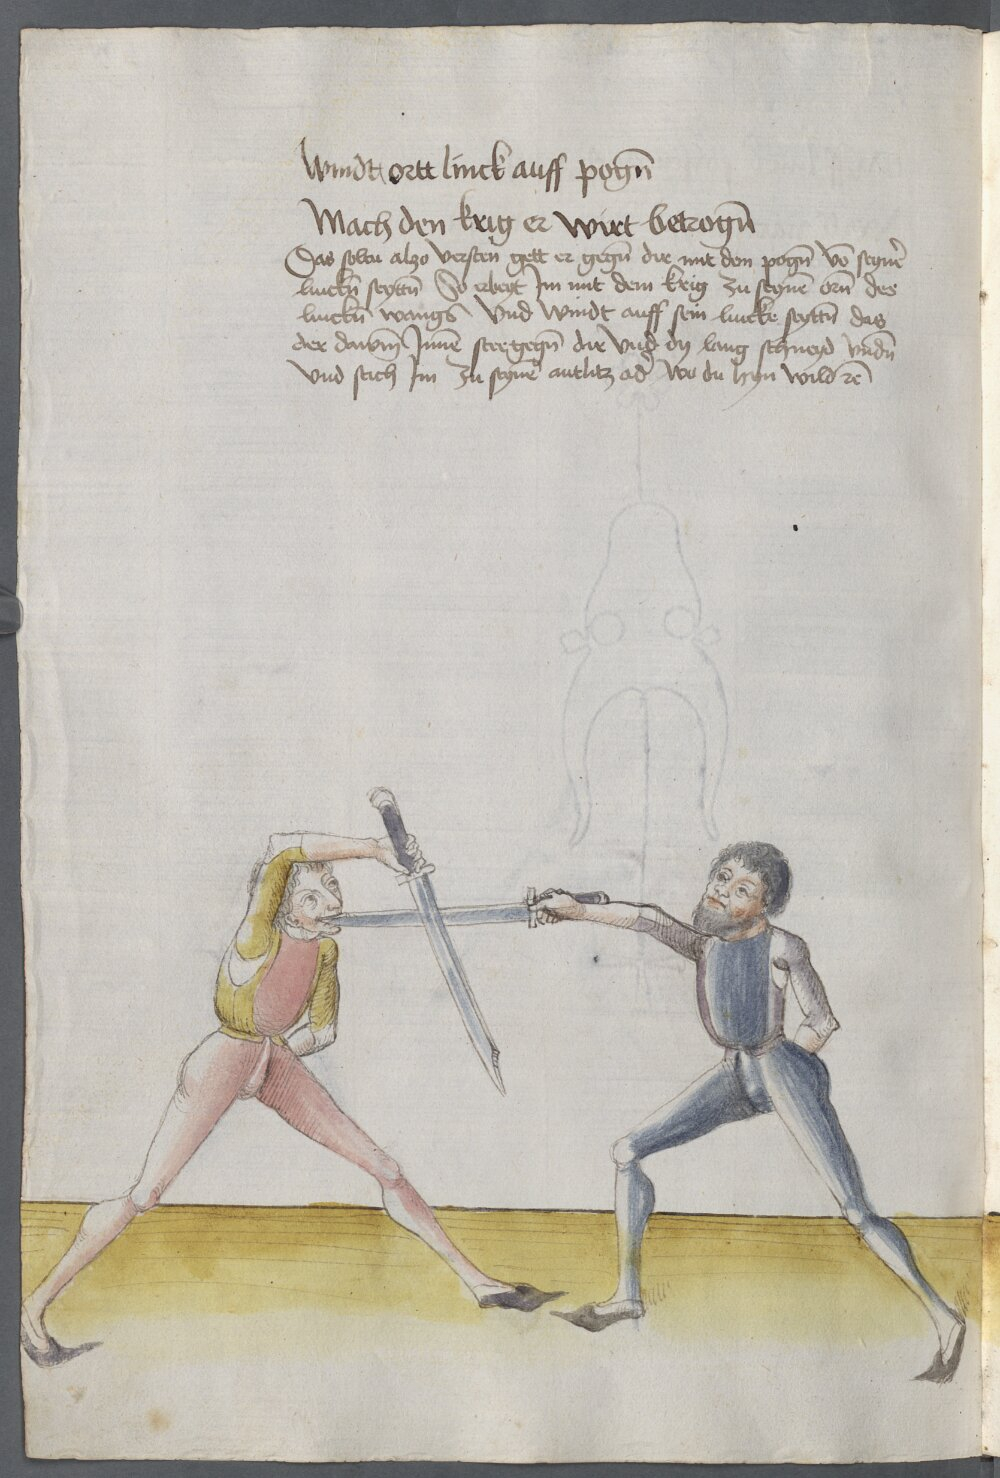 Windt ortt linck auff pogn̄
Mach den krig er wirt betrogn̄
Das soltu alzo versten gett er gegn̄ dir mit dem pogn̄ vō seyner
linckn̄ seyttn̄ So erbeyt Im mit dem krig zu seynē orn̄ des
linckn̄ wangs Und windt auff sein lincke seyttn̄ das
der dawm̄ Innē stee gegn̄ dir Und dy lang schneyd vndn̄
Und stich Im zu seynē antlitz od wo du hyn wild